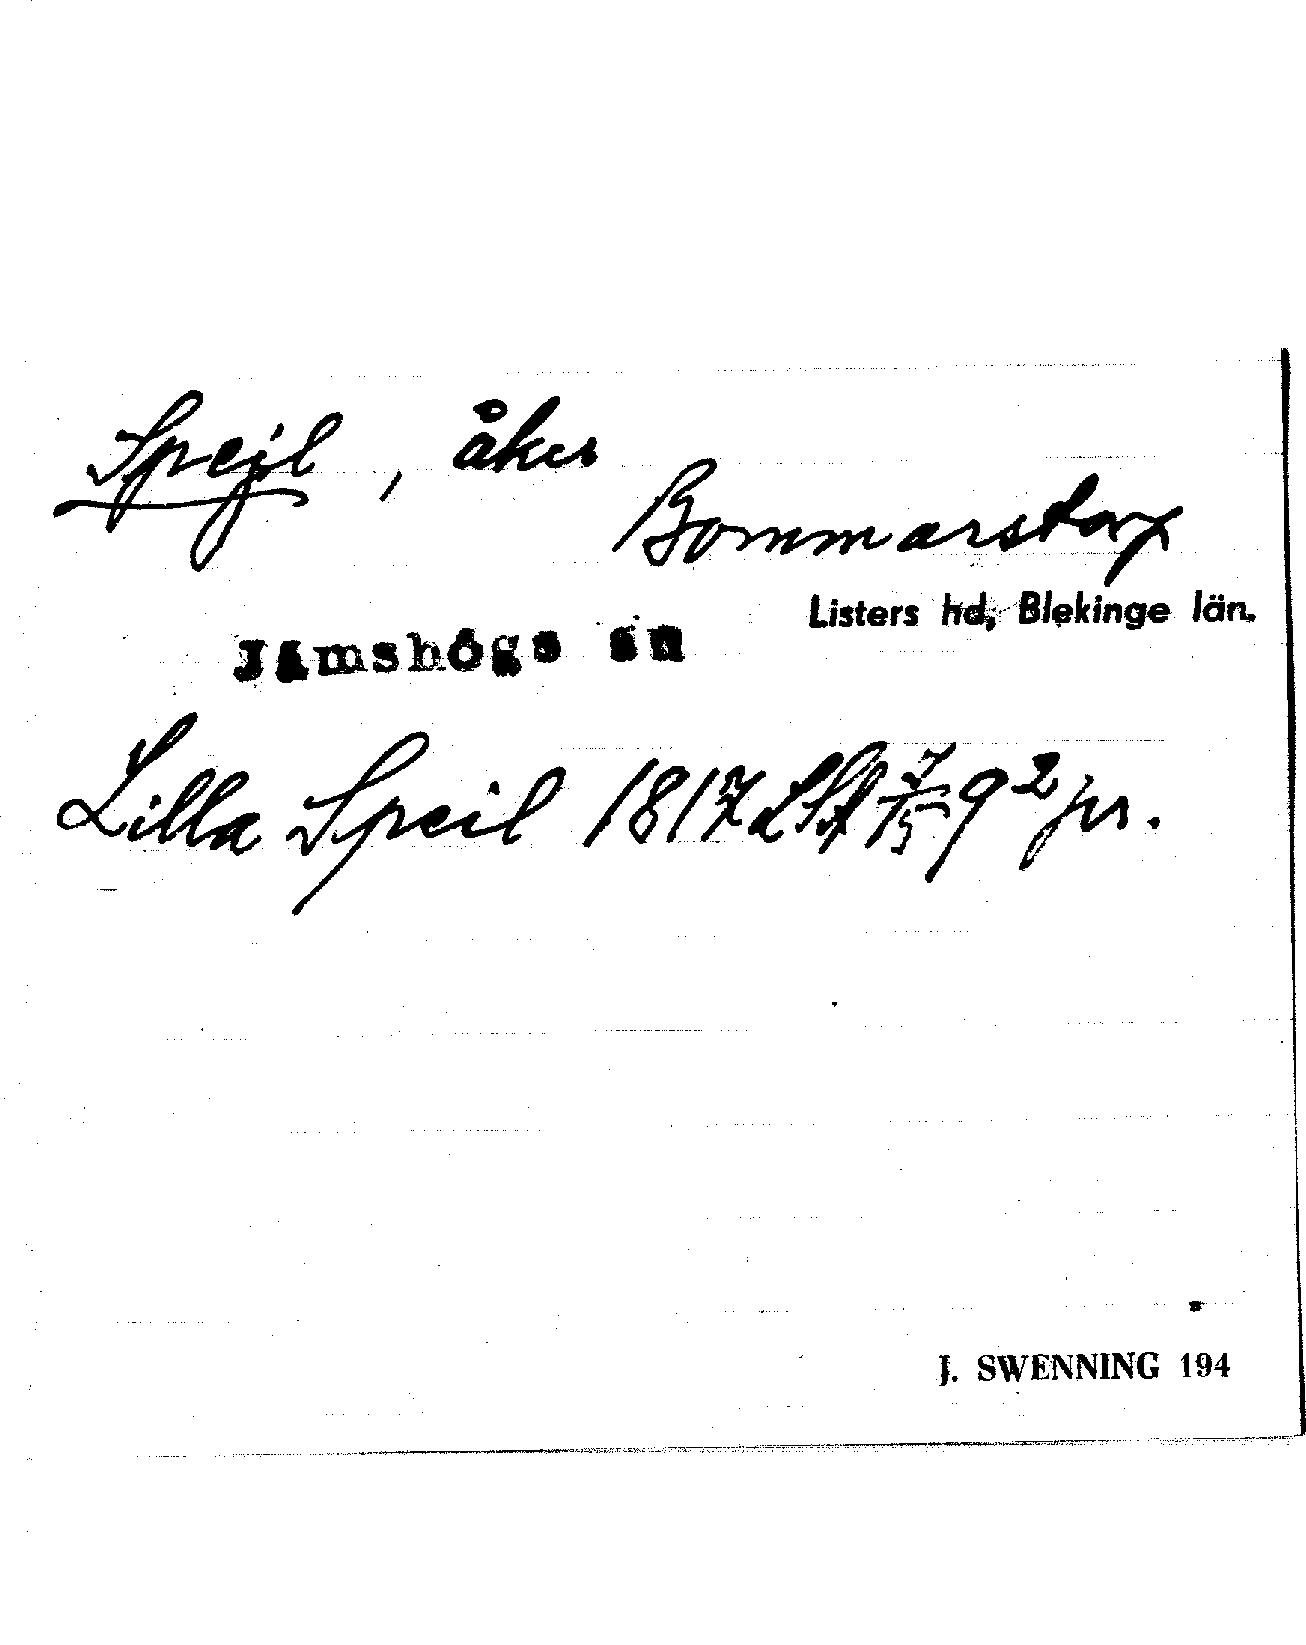 Spejl, åker
Bommarstorp
Listers hd, Blekinge län.
Jämshögs sn
Lilla Speil 1817 LSA 7/15 9 2 jr.
J. SWENNING 194